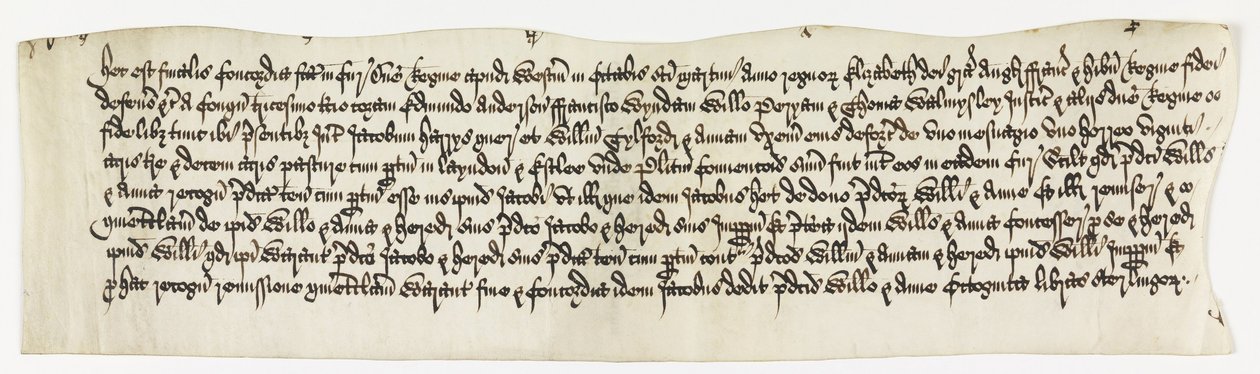 Hec est finalis Concordia fc̄a in Cur̄ Dn̄e Regine apud Westm̄ in Octabis Sc̄i Martini Anno regnor̄ Elizabeth dei gr̄a Angl̄ ffranc̄ & Hib̄n Regine fidei
defens̄ &c̄ A Conqū tricesimo t̄cio coram Edmundo Anderson ffrancisco Wyndam Will̄o Peryam & Thoma Walmysley Justic̄ & aliis dn̄e Regine
fidelibȝ tunc ibi p̄sentibȝ Int̄ Jacobum Harrys quer̄ et Will̄m Tylford & Annam vxem̄ eius deforc̄ de vno mesuagio vno horreo viginti
acris t̄re & decem acris pasture cum ptin̄ in Layndon & Estlee vnde Pl̄itum Convencois sum̄ fuit int̄ eos in eadem Cur̄ Scilt̄ qd̄ p̄dc̄i Will̄s
& Anna recogn̄ p̄dc̄a ten̄ cum ptin̄ esse ius ip̄ius Jacobi vt ill̄ que idem Jacobus het de dono p̄dc̄or̄ Will̄i & Anne Et ill̄ remiser̄ &
quietclam̄ de ip̄is Will̄o & Anna & hered̄ suis p̄dc̄o Jacobo & hered̄ suis Imppm̄ Et p̄t̄ea idem Will̄s & Anna concesser̄ p se & hered̄
ip̄ius Will̄i qd̄ ip̄i Warant̄ p̄dc̄o Jacobo & hered̄ suis p̄dc̄a ten̄ cum ptin̄ cont̄a p̄dc̄os Will̄m & Annam & hered̄ ip̄ius Will̄i Imppm̄ Et
p hac recogn̄ remissione quietclam̄ Warant̄ fine & Concordia idem Jacobus dedit p̄dc̄is Will̄o & Anne Octoginta libras sterlingor̄